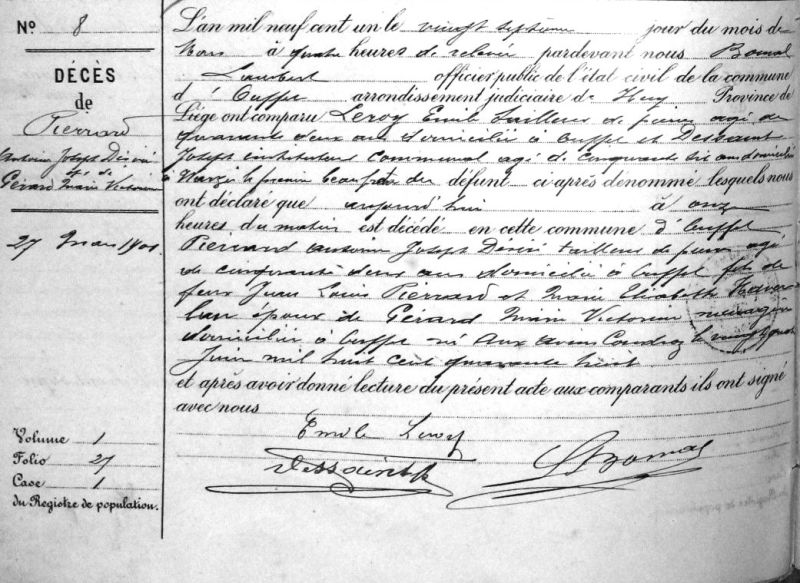 N° 8
DÉCÈS
de
Pierrard
Antoine Joseph Désiré
ép. de
Gérard Marie Victorine
27 Mars 1901
Volume 1
Folio 27
Case 1
du Registre de population.
L'an mil neuf cent un le vingt septième jour du mois de
Mars à quatre heures de relevée pardevant nous Bomal
Lambert officier public de l'état civil de la commune
d'Ouffet arrondissement judiciaire de Huy Province de
Liége ont comparu Leroy Emile tailleur de pierres agé de
quarante deux ans domicilié à Ouffet et Dessaint
Joseph instituteur communal agé de cinquante six ans domicilié
à Warzée le premier beau frère du défunt ci après dénommé lesquels nous
ont déclaré que aujourd'hui à onze
heures du matin est décédé en cette commune d'Ouffet
Pierrard Antoine Joseph Désiré tailleur de pierres agé
de cinquante deux ans domicilié à Ouffet fils de
feux Jean Louis Pierrard et Marie Elisabeth
époux de Gérard Marie Victorine ménagère
domiciliée à Ouffet né aux Avins Condroz le vingt quatre
Juin mil huit cent quarante huit
et après avoir donné lecture du présent acte aux comparants ils ont signé
avec nous
Emile Leroy
Dessaint J
L Bomal